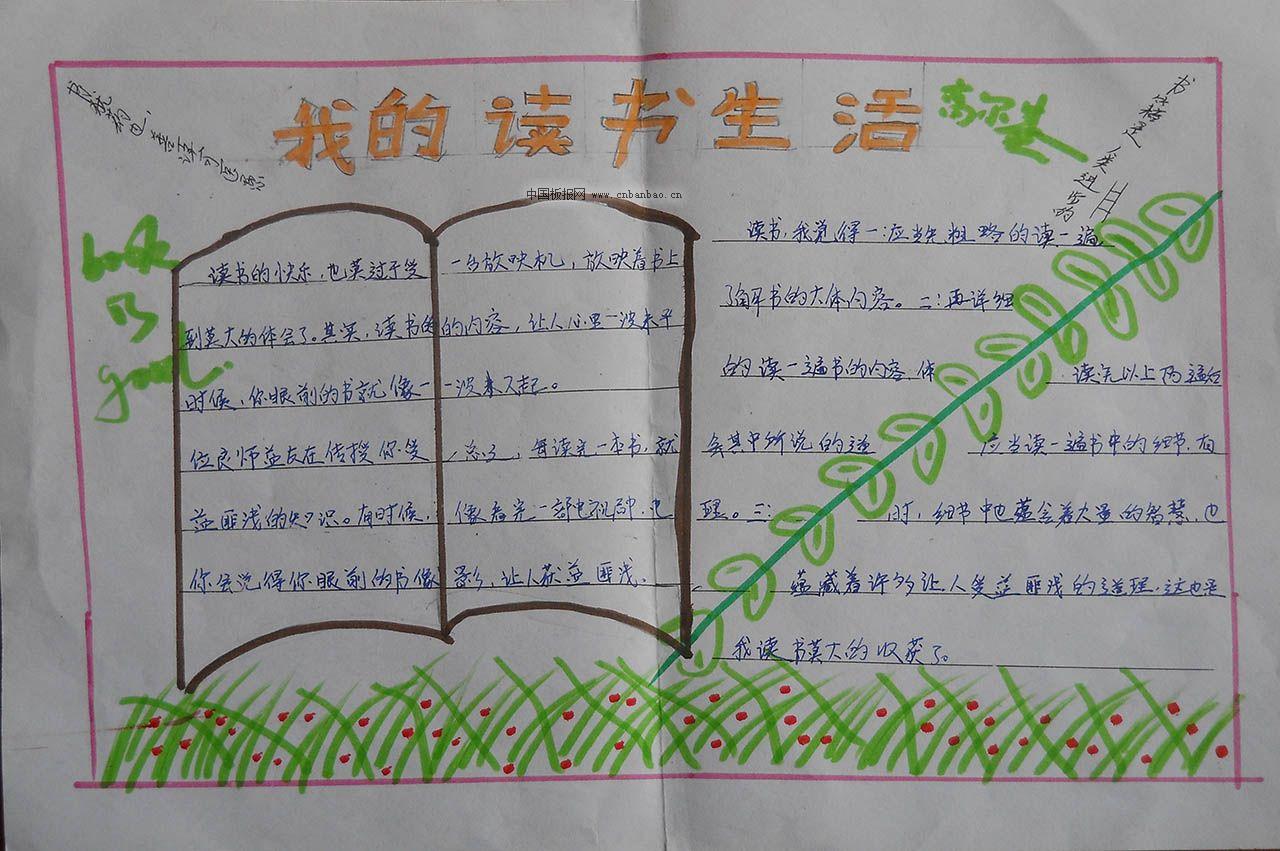 我的读书生活
高尔基
书犹药也,善读可医愚
书籍是人类进步的
中国板报网 www.cnbanbao.cn
book
is
good.
读书的快乐,也莫过于受
到莫大的体会了。其实,读书的
时候,你眼前的书就像一
位良师益友在传授你受
益匪浅的知识。有时候,
你会觉得你眼前的书像
一台放映机,放映着书上
的内容,让人心里一波未平
一波来又起。
总之,每读完一本书,就
像看完一部电视剧,电
影,让人获益匪浅。
读书,我觉得一:应当先粗略的读一遍,
了解书的大体内容。二:再详细
的读一遍书的内容,体
会其中所说的道
理。三:
读完以上两遍后
应当读一遍书中的细节,有
时,细节中也蕴含着大量的智慧,也
蕴藏着许多让人受益匪浅的道理,这也是
我读书莫大的收获了。